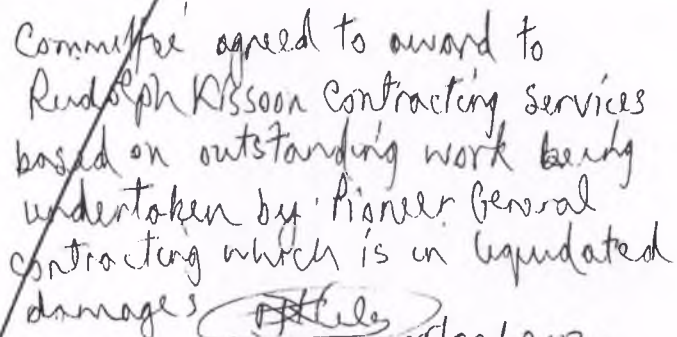 Committee agreed to award to
Rudolph Kissoon Contracting Services
based on outstanding work being
undertaken by Pioneer General
contracting which is in liquidated
damages